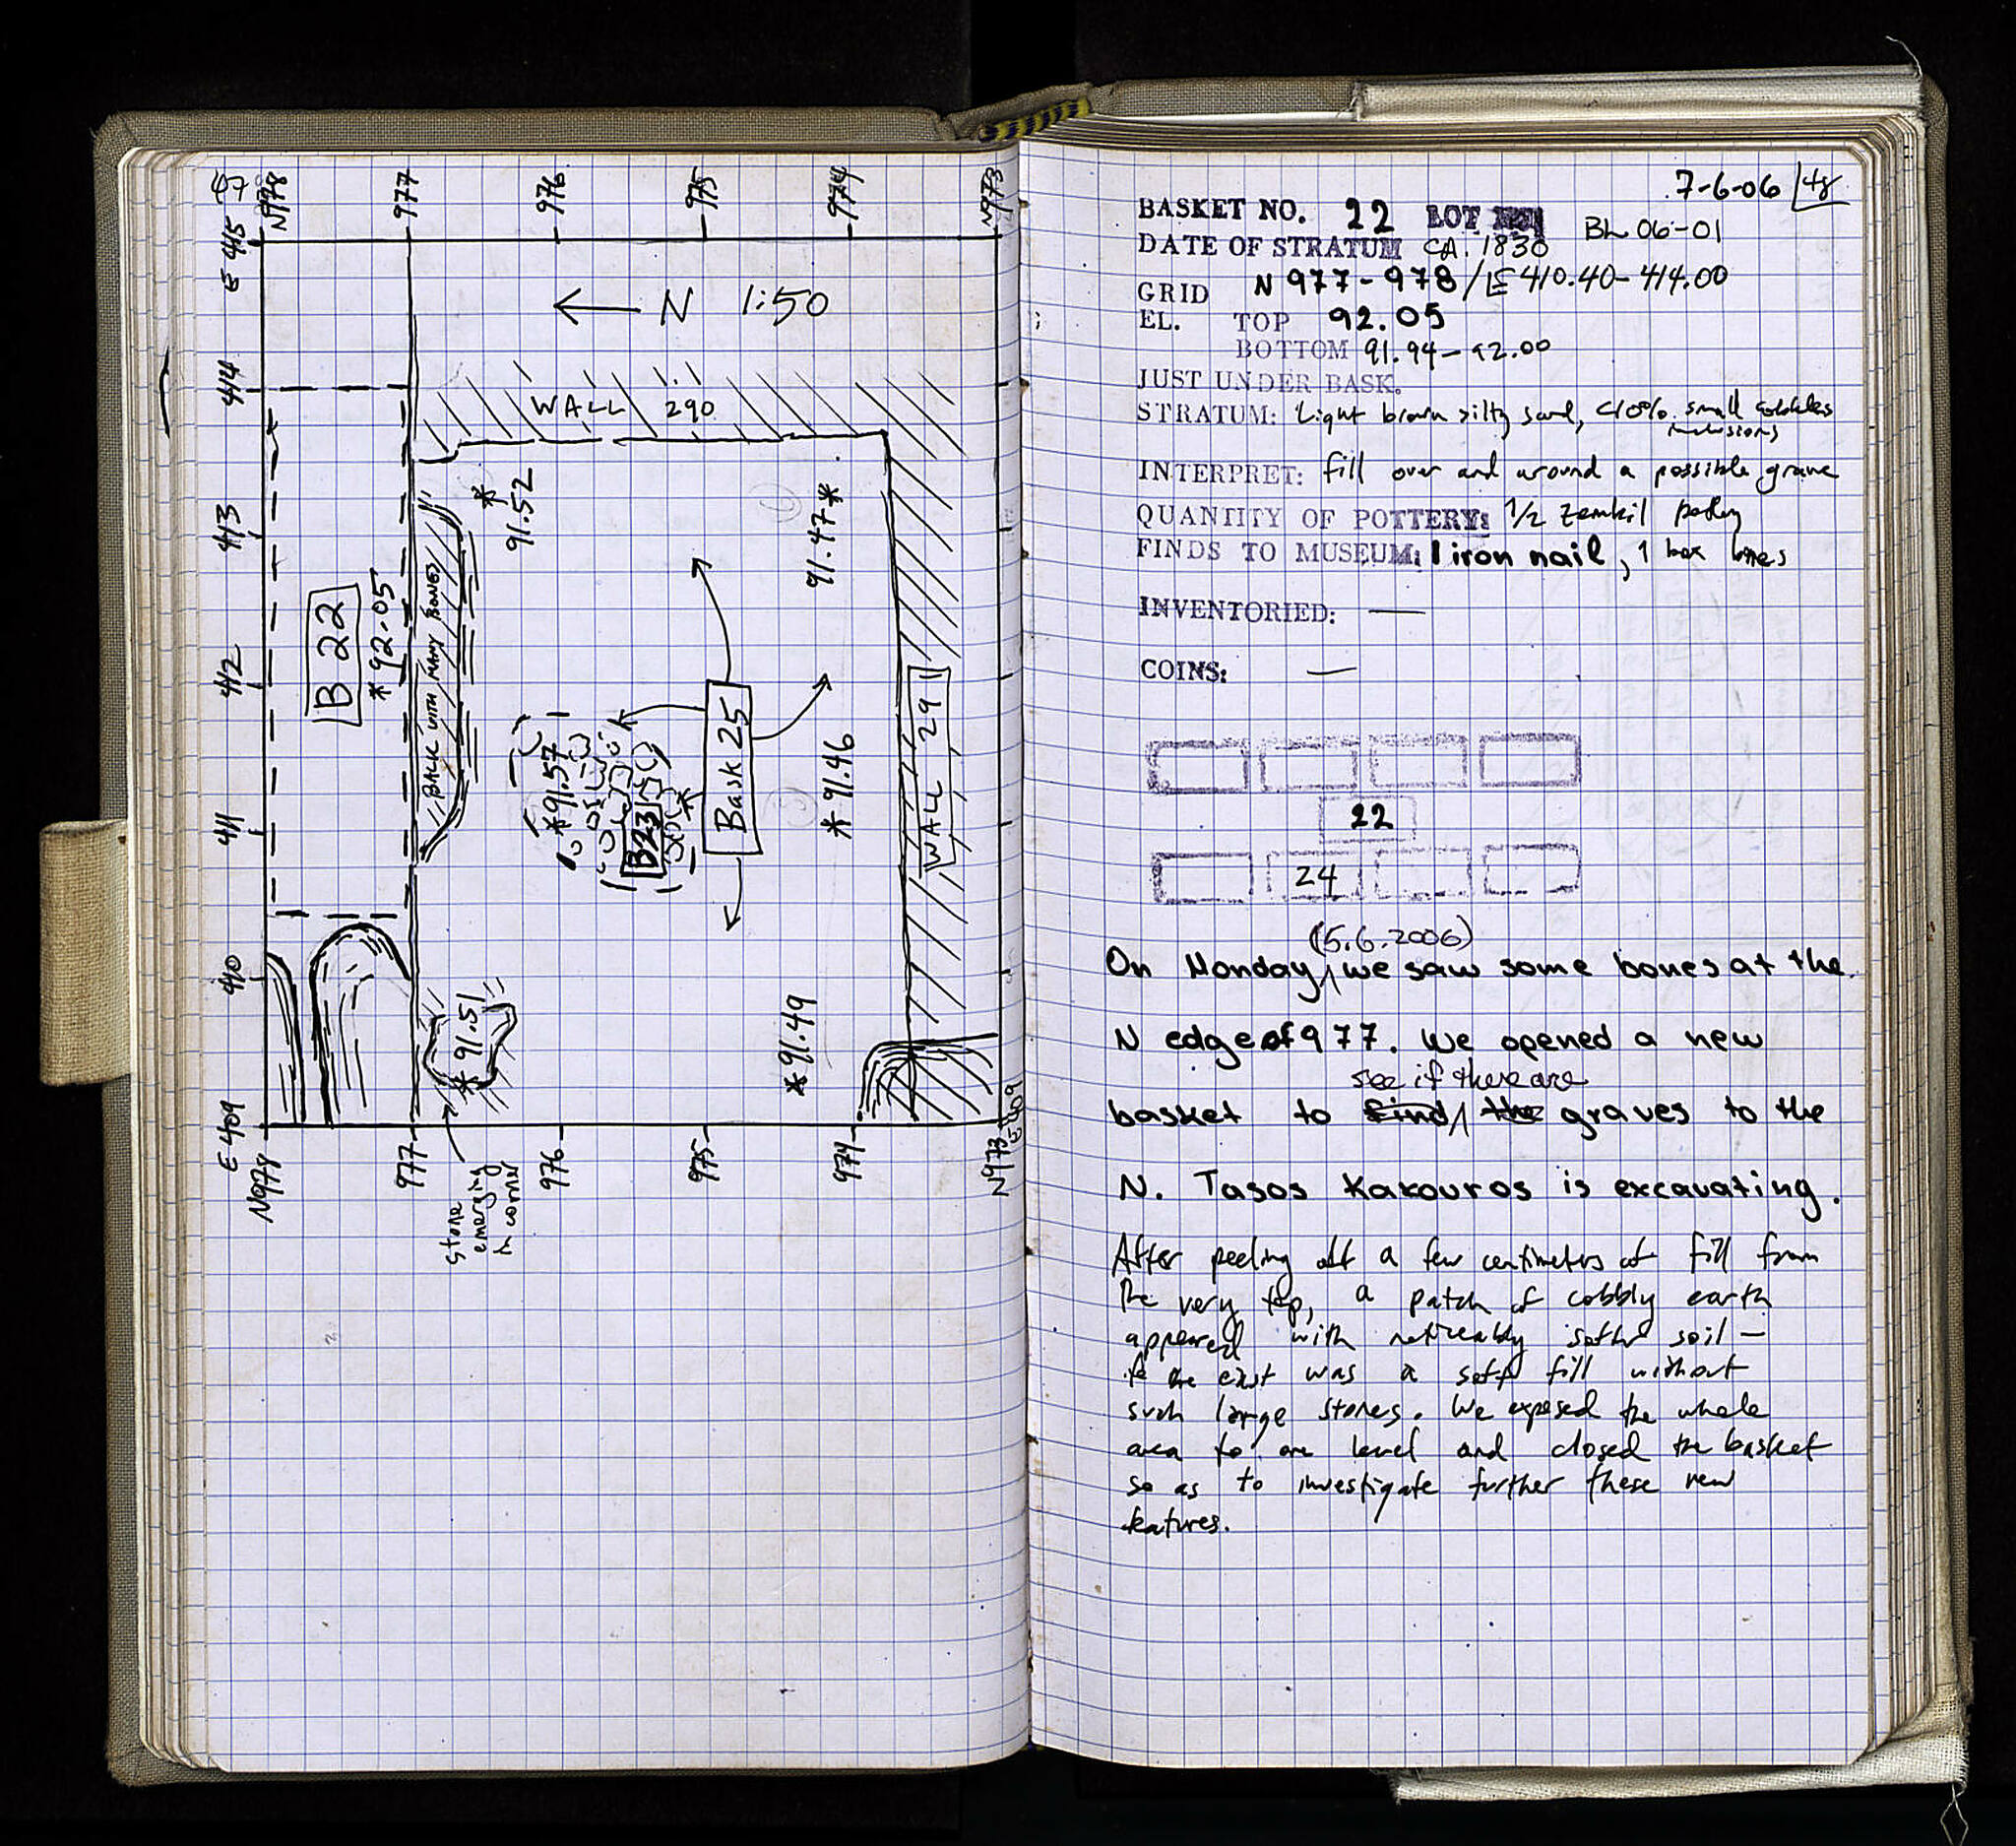 47
N978
977
976
975
974
N973
E 415
414
413
412
411
410
E 409
← N 1:50
WALL 290
B 22
* 92.05
BALK WITH MANY BONES
* 91.52
91.47 *
* 91.57
B23
Bask 25
* 91.46
WALL 291
* 91.51
* 91.49
N978
977
976
975
974
N973
E 409
stone
emerging
in corner
7-6-06 48
BASKET NO. 22 LOT
BL 06-01
DATE OF STRATUM CA. 1830
GRID N 977-978/E 410.40-414.00
EL. TOP 92.05
BOTTOM 91.94-92.00
JUST UNDER BASK.
STRATUM: Light brown silty sand, <10% small cobbles
inclusions
INTERPRET: fill over and around a possible grave
QUANTITY OF POTTERY: 1/2 zembil pottery
FINDS TO MUSEUM: 1 iron nail, 1 box bones
INVENTORIED: —
COINS: —
22
24
(5.6.2006)
On Monday, we saw some bones at the
N edge of 977. We opened a new
see if there are
basket to find the graves to the
N. Tasos Kakouros is excavating.
After peeling off a few centimeters of fill from
the very top, a patch of cobbly earth
appeared with noticeably softer soil —
to the east was a soft fill without
such large stones. We exposed the whole
area to one level and closed the basket
so as to investigate further these new
features.